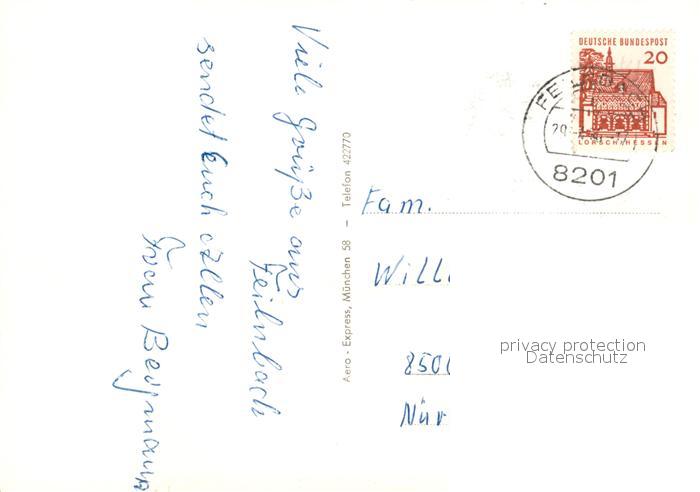 Viele Grüße aus
Feilnbach
sendet Euch Allen
Frau Bergmann
Aero - Express, München 58 - Telefon 422770
DEUTSCHE BUNDESPOST
20
LORSCH/HESSEN
8201
Fam.
Willi
850
Nür
privacy protection
Datenschutz